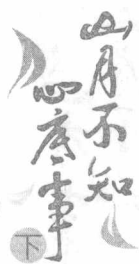 山月不知
心底事
下